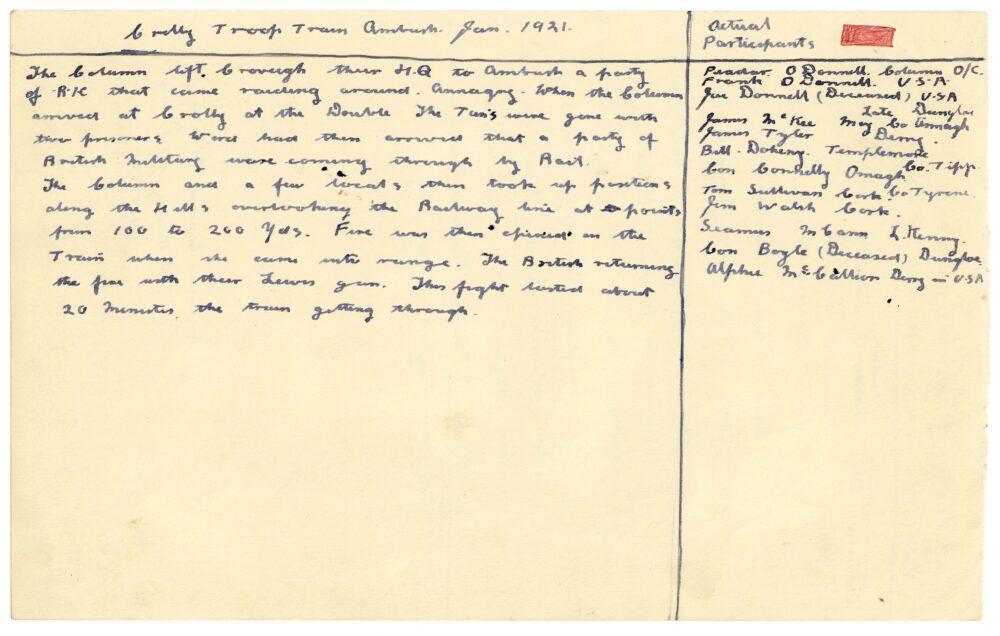 Crolly Troop Train Ambush. Jan. 1921.
The Column left. Croveigh their H.Q to Ambush a party
of R.I.C that came raiding around. Annagry. When the Column
arrived at Crolly at the Double The Tan's were gone with
two prisoners. Word had then arrived that a party of
British Military were coming through by Rail.
The Column and a few locals then took up positions
along the Hills overlooking the Railway line at points
from 100 to 200 Yds. Fire was then opened on the
Train when she came into range. The British returning
the fire with their Lewis gun. This fight lasted about
20 Minutes the train getting through.
Actual
Participants
Peadar O Donnell. Column O/C.
Frank O Donnell. U.S.A.
Joe Donnell (Deceased) U.S.A
Late Dungloe
James McKee May Co Armagh
James Tyler Derry.
Bill. Doheny. Templemore
Co. Tipp.
Con Connelly Omagh
Co Tyrone.
Tom Sullivan Cork
Jim Walsh Cork.
Seamus McCann L.Kenny.
Con Boyle (Deceased) Dungloe
Alphie McCallion Derry in U.S.A